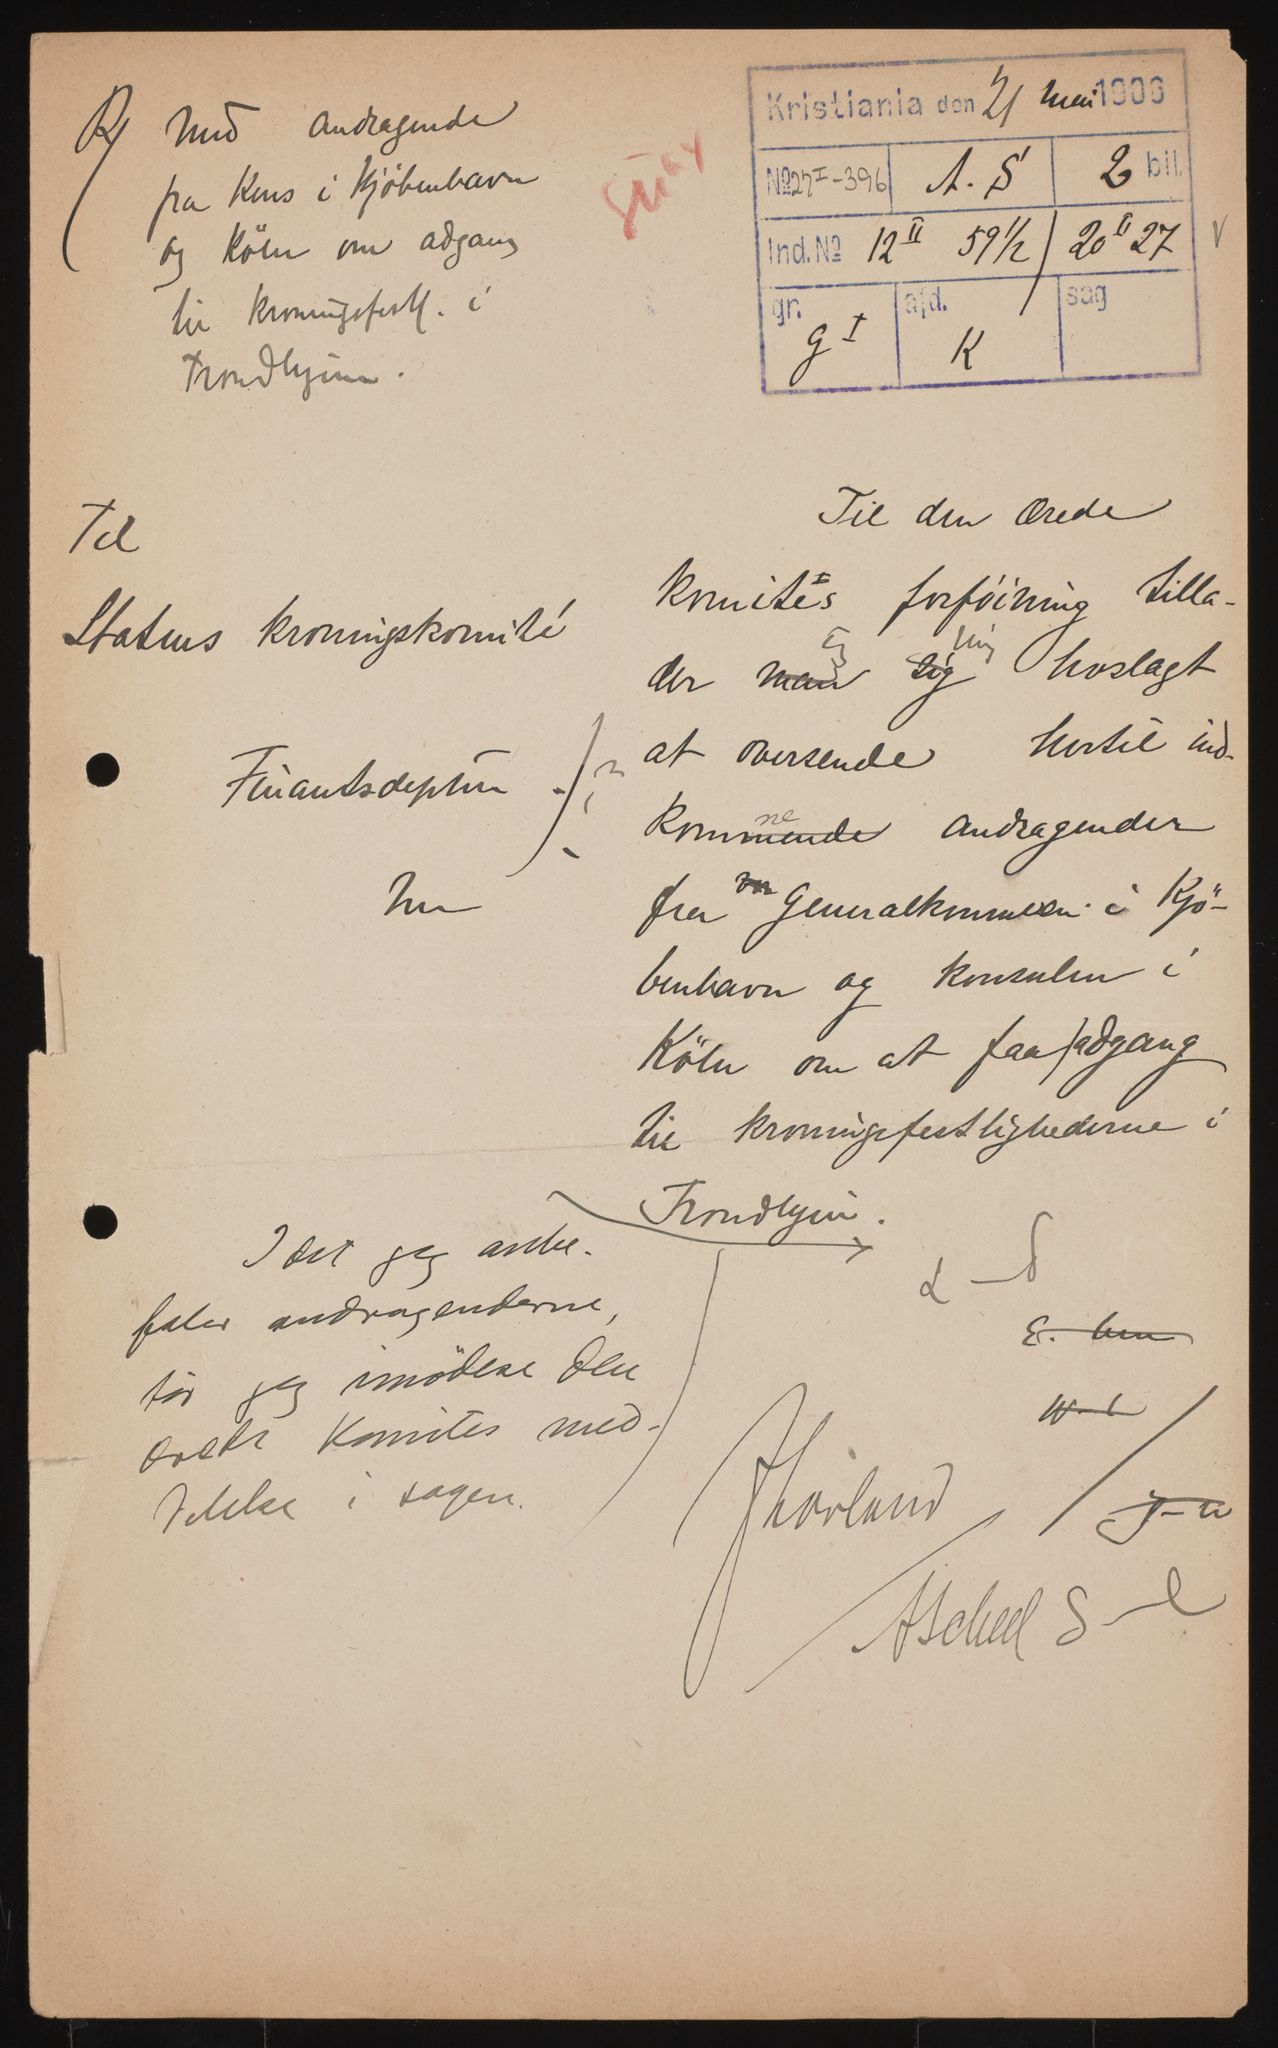 med andragende
fra Kens i Kjöbenhavn
og Köln om adgang
til kroningsfestl. i
Trondhjem.
Kristiania den 21 mai 1906
No 27 I-396 A. S 2 bil.
Ind. No 12 II 59 1/2 / 20 II 27 V
gr. g I afd. K sag
Til
Statens kroningskomité
Finantsdeptm
Til den ærede
komités forföining tilla-
der man sig hoslagt
jeg mig
at oversende hertil ind-
kommende andragender
ne
fra Generalkonsulen i Kjö-
benhavn og konsulen i
Köln om at faa adgang
til kroningsfestlighederne i
Trondhjem.
Idet jeg anbe-
faler andragenderne,
tör jeg imödese den
ærede Komites med-
delelse i sagen.
E. hm
JLövland
J-n
AScheel S-l